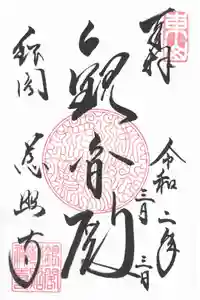 奉拝
令和二年
三月三日
観音殿
銀閣
慈照寺